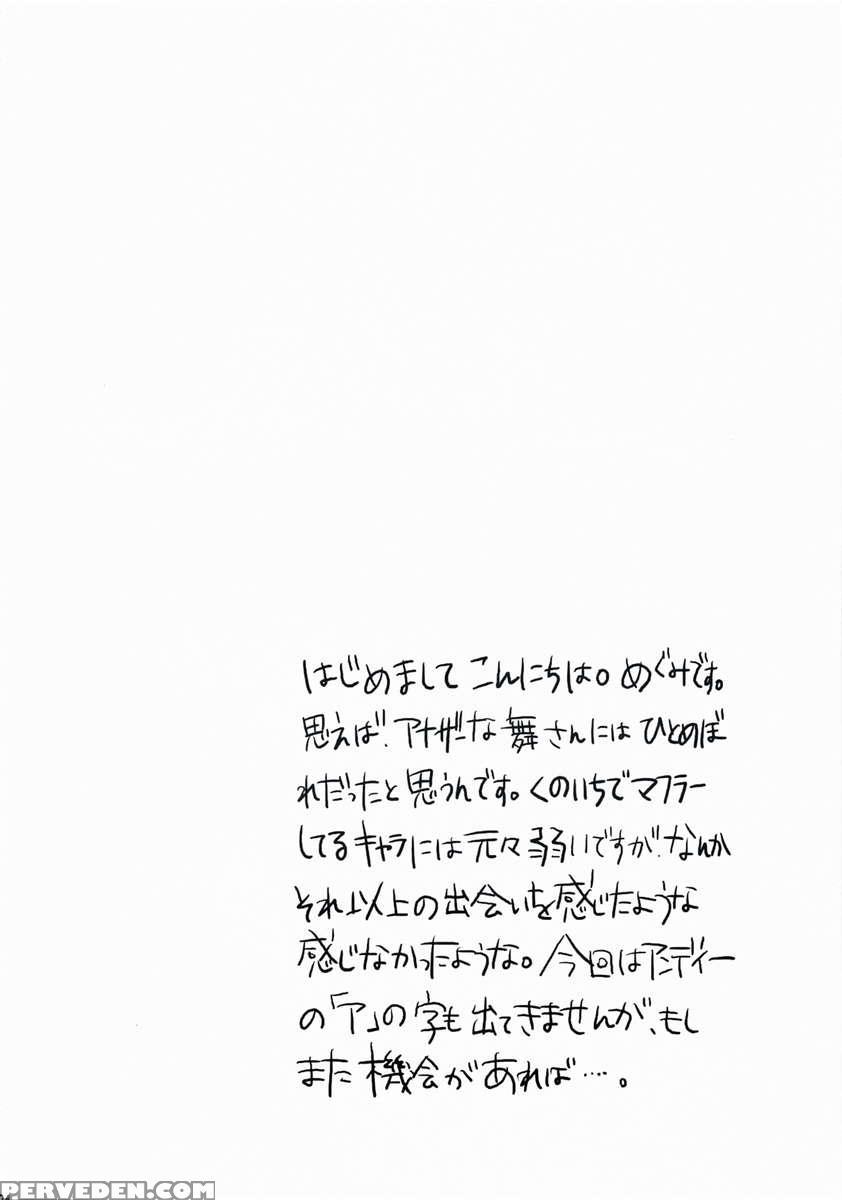 はじめまして こんにちは。めぐみです。
思えば、アナザーな舞さんには ひとめぼ
れだったと思うんです。くのいちでマフラー
してるキャラには元々弱いですが、なんか
それ以上の出会いを感じたような
感じなかったような。今回はアンディー
の「ア」の字も出てきませんが、もし
また機会があれば…。
PERVEDEN.COM